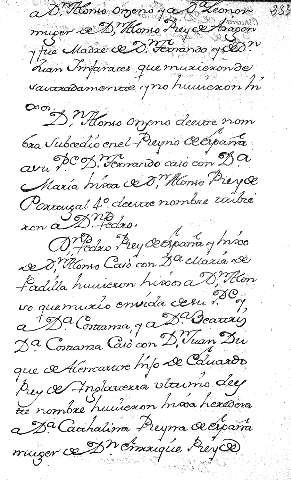 a Dn Alonso onzeno y a Da Leonor
muger de Dn Alonso Rey de Aragon
y fue Madre de Dn Fernando y de Dn
Juan Infantes que murieron de
y no huvieron hi
xos.
Dn Alonso onzeno de este nom
bre Subcedio en el Reyno de España
a su Pe Dn Fernando casó con Da
Maria hixa de Dn Alonso Rey de
Portugal 4o de este nombre tubie
ron a Dn Pedro.
Dn Pedro Rey de España y hixo
de Dn Alonso Casó con Da Maria de
Padilla huvieron hixos a Dn Alon
so que murio en vida de su Pe y
a Da Costama, y a Da Beatris
Da Costama Casó con Dn Juan Du
que de Alencastre hijo de Eduardo
Rey de Inglaterra de es
te nombre huvieron hixa heredera
a Da Cathalina Reyna de España
muger de Dn Enrrique Rey de